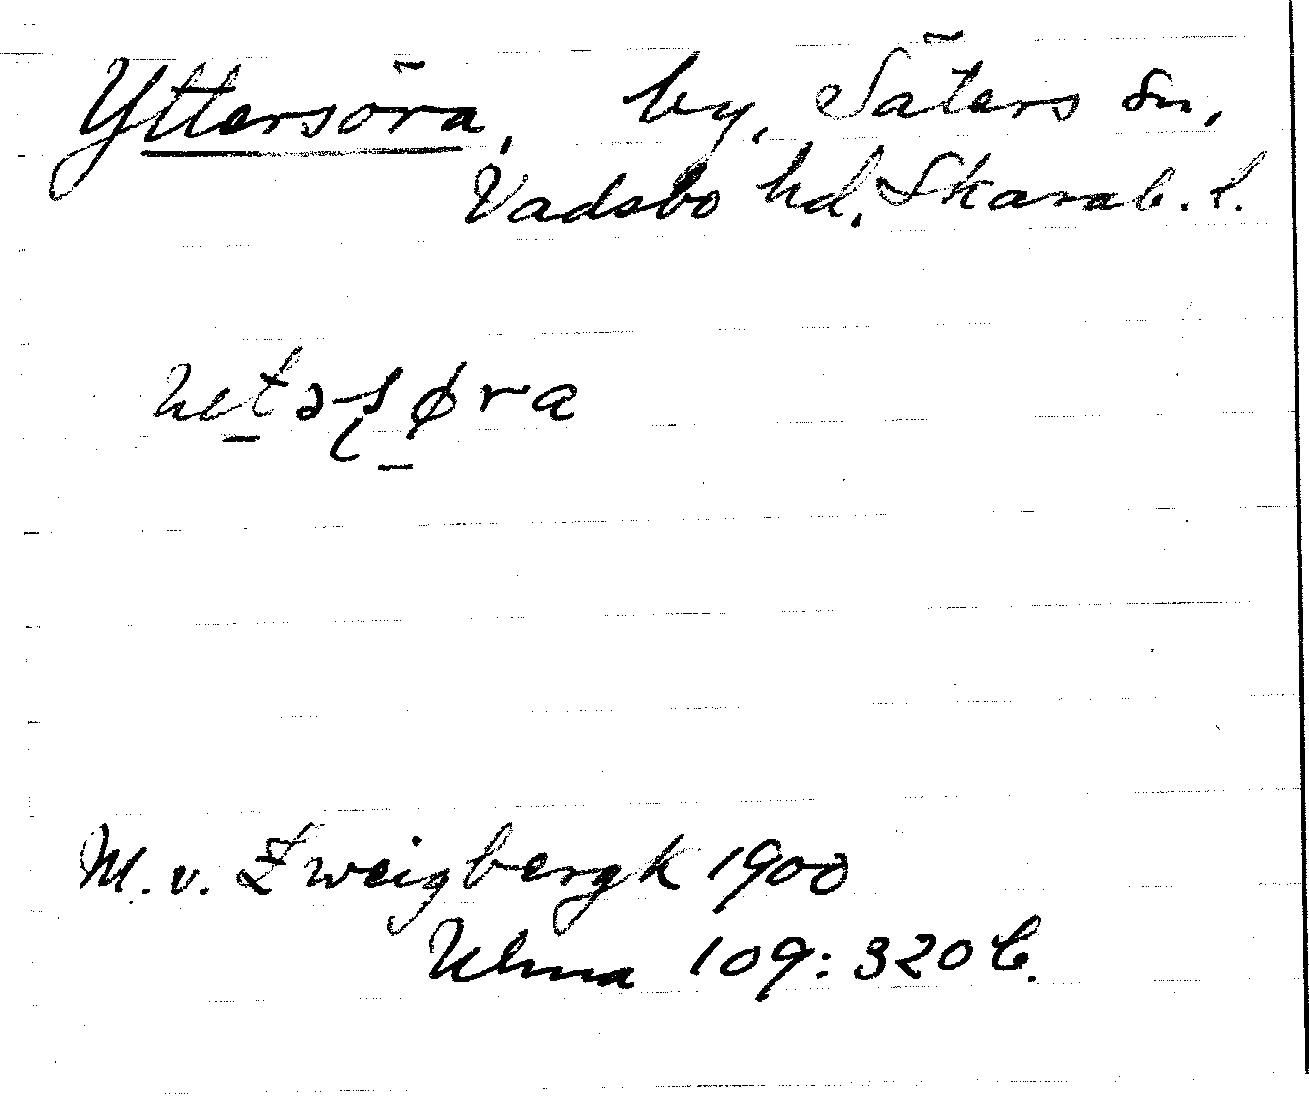 Yttersöra, by, Säters sn,
Vadsbo hd, Skarab. l.
M. v. Zweigbergk 1900
Ulma 109:320 b.